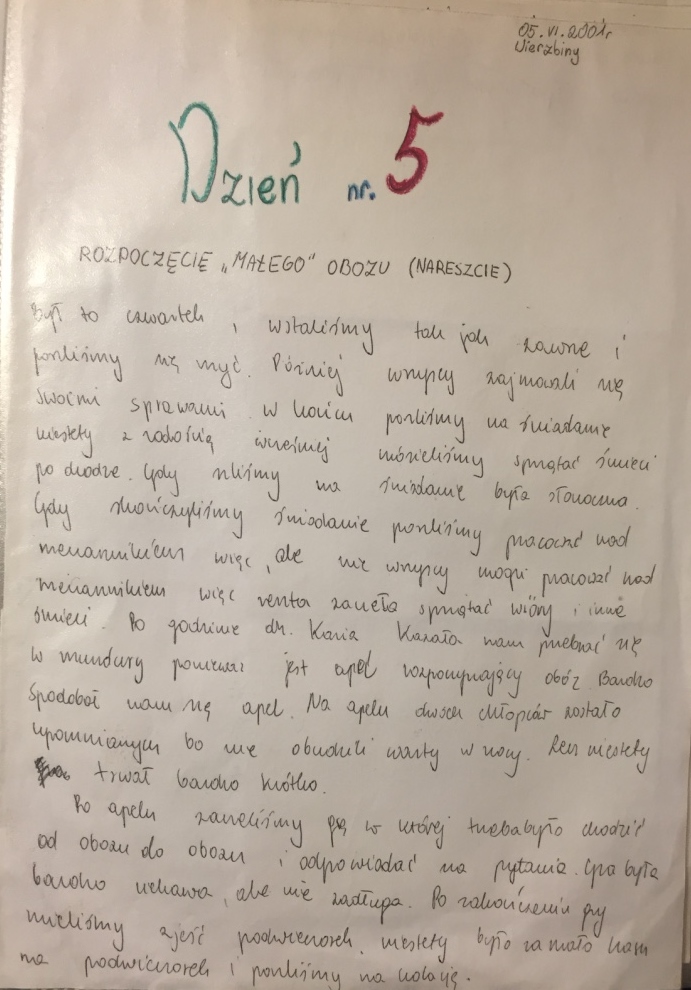 05.VI.2001r
Wierzbiny
Dzień nr. 5
ROZPOCZĘCIE „MAŁEGO" OBOZU (NARESZCIE)
Był to czwartek, wstaliśmy tak jak zawsze i
poszliśmy się myć. Później wszyscy zajmowali się
swoimi sprawami w końcu poszliśmy na śniadanie
niestety z radością wcześniej musieliśmy sprzątać śmieci
po drodze. Gdy szliśmy na śniadanie była słoneczna.
Gdy skończyliśmy śniadanie poszliśmy pracować nad
mechannikiem więc, ale nie wszyscy mogli pracować nad
mechannikiem więc reszta zaczęła sprzątać wióry i inne
śmieci. Po godzinie dh. Kasia Kazała nam przebrać się
w mundury ponieważ jest apel rozpoczynający obóz. Bardzo
spodobał nam się apel. Na apelu dwóch chłopców zostało
upomnianych bo nie obudzili warty w nocy. Lecz niestety
trwał bardzo krótko.
Po apelu zaczeliśmy grę w której trzebabyło chodzić
od obozu do obozu i odpowiadać na pytania. Gra była
bardzo ciekawa, ale nie zadługa. Po zakończeniu gry
mieliśmy zjeść podwieczorek, niestety było za mało nam
na podwieczorek i poszliśmy na kolację.